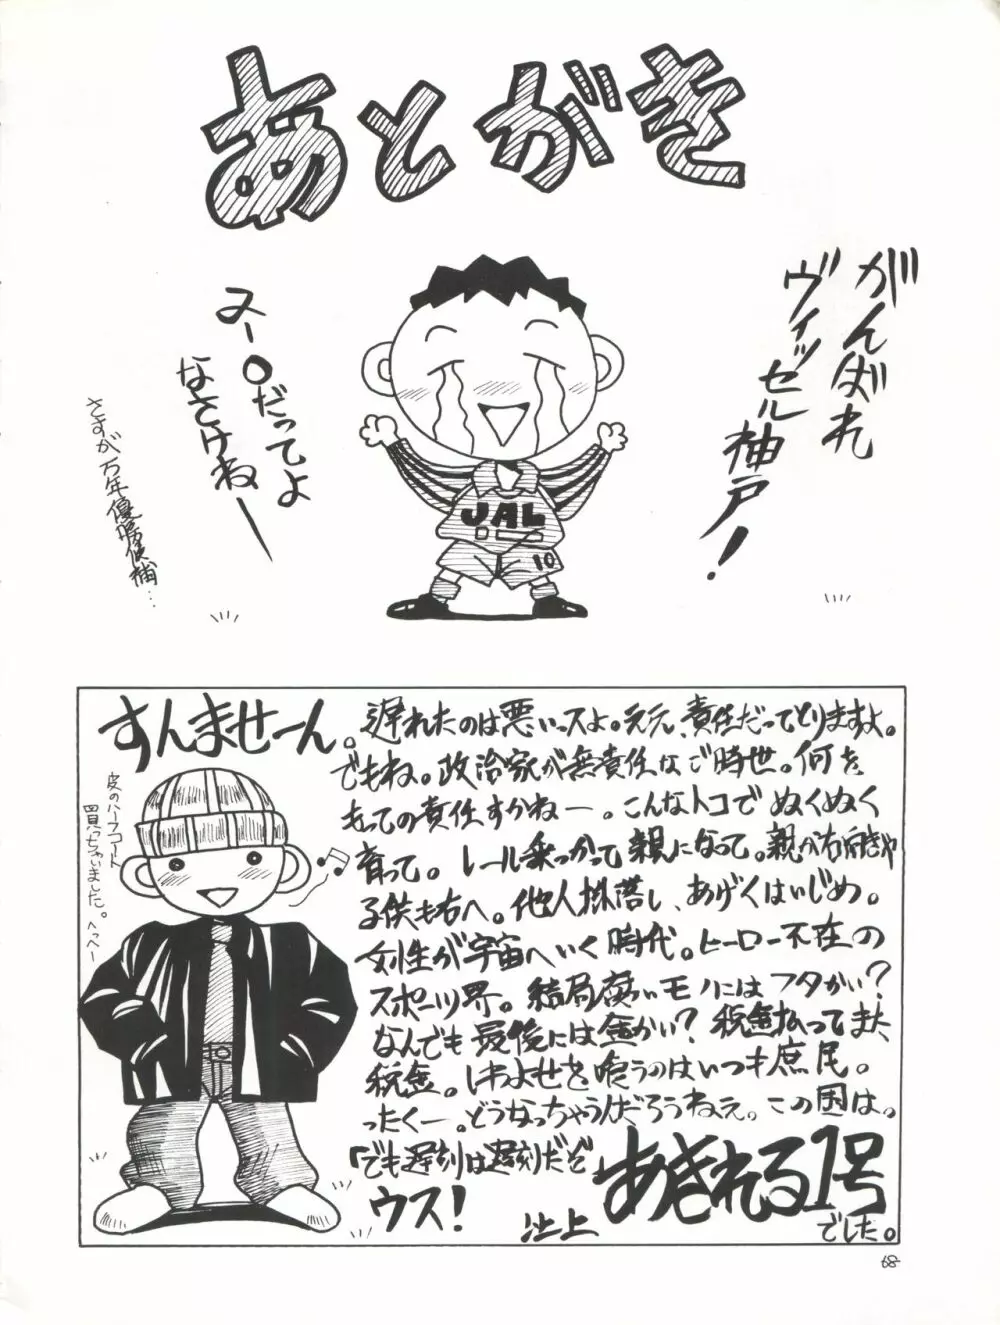 あとがき
がんばれ
ヴィッセル神戸!
スーOだってよ
なさけねー
さすが万年優勝候補…
JAL
10
すんませーん。
皮のハーフコート
買っちゃいました。へっへー
遅れたのは悪いっスよ。ええ、責任だってとりますよ。
でもね。政治家が無責任なご時世。何を
もっての責任すかねー。こんなトコでぬくぬく
育って。レール乗っかって親になって。親が右向きゃ
子供も右へ。他人蹴落し、あげくはいじめ。
女性が宇宙へいく時代。ヒーロー不在の
スポーツ界。結局腐いモノにはフタかい?
なんでも最後には金かい?税金払ってまた、
税金。しわよせを喰うのはいつも庶民。
ったくー。どうなっちゃうんだろうねえ。この国は。
「でも遅刻は遅刻だぞ」
ウス!
池上
あきれる1号
でした。
68